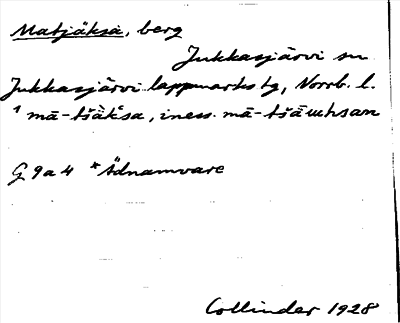 Matjäksa, berg
Jukkasjärvi sn
Jukkasjärvi lappmarks tg, Norrb. l.
¹ mā-tšäk'sa, iness. mā-tšäuhsan
G 9a4 *Ädnamvare
Collinder 1928